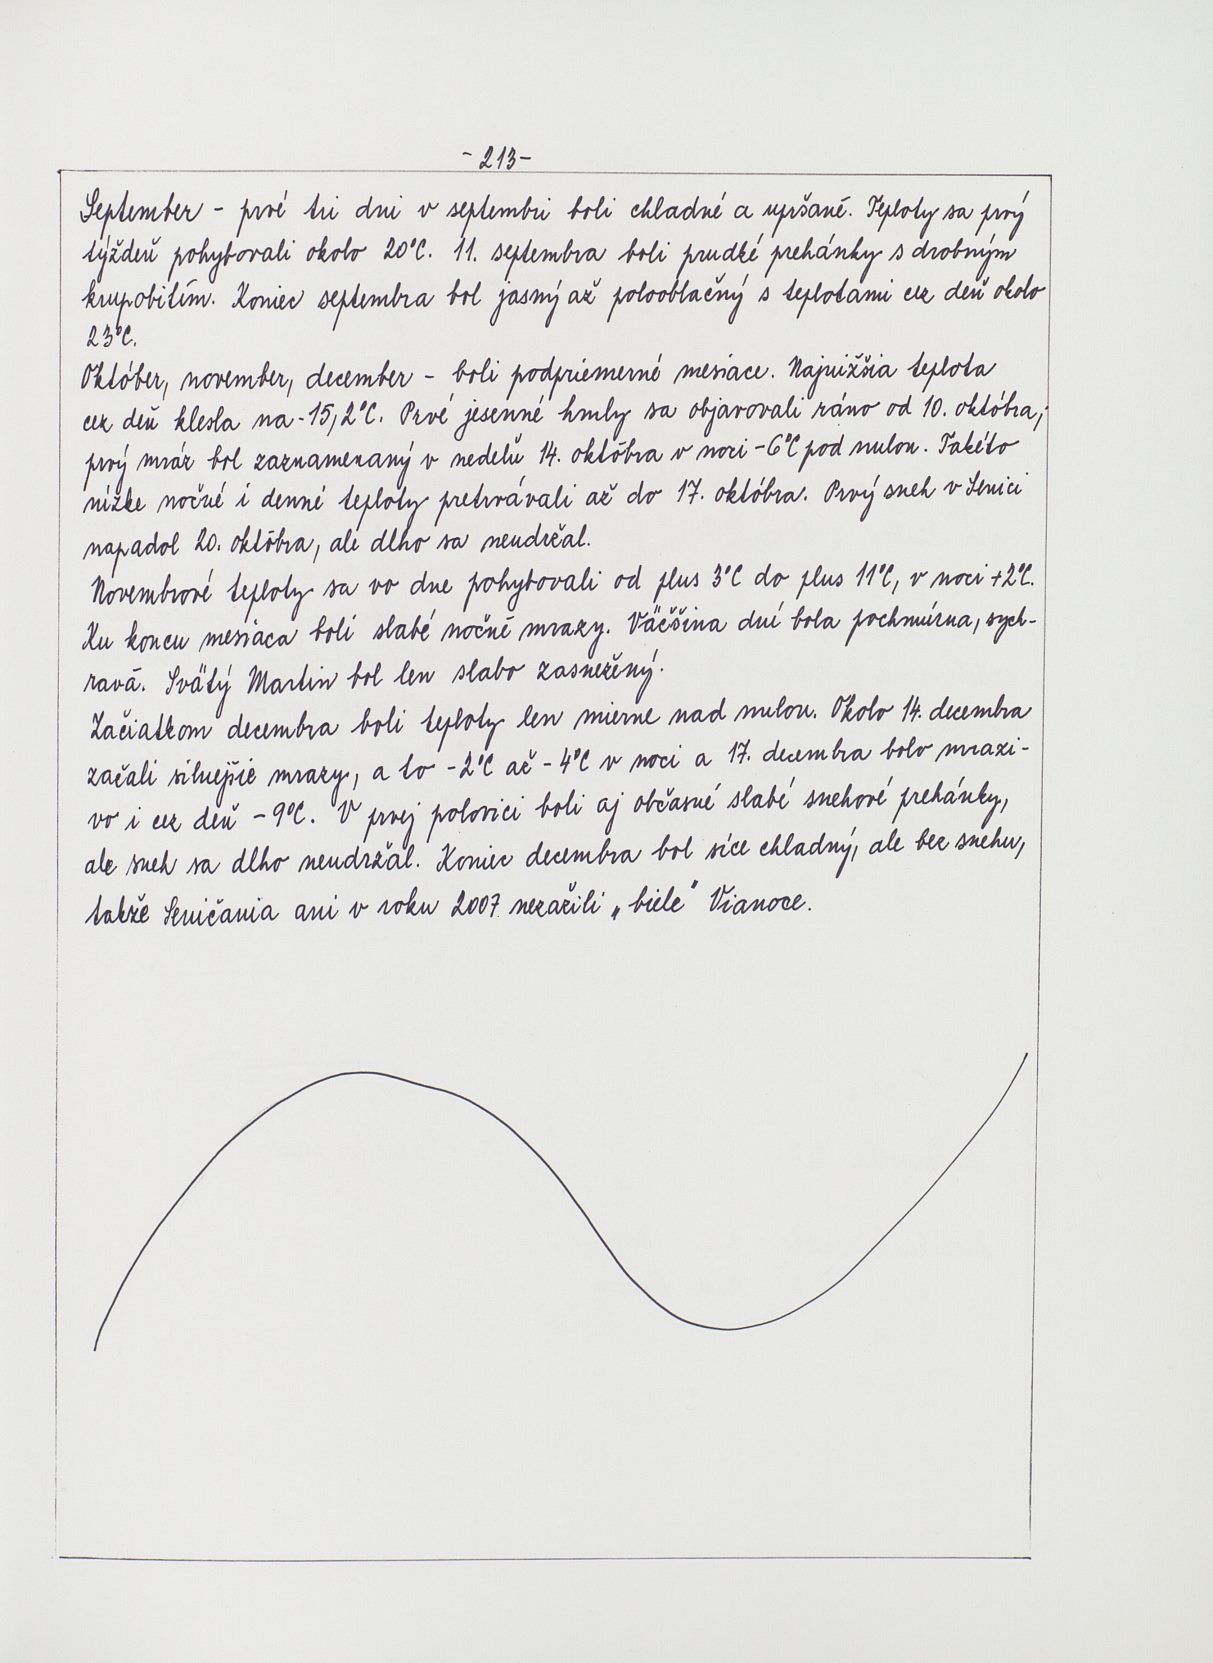 - 213 -
September - prvé tri dni v septembri boli chladné a upršané. Teploty sa prvý
týždeň pohybovali okolo 20°C. 11. septembra boli prudké prehánky s drobným
krupobitím. Koniec septembra bol jasný až polooblačný s teplotami cez deň okolo
23°C.
Október, november, december - boli podpriemerné mesiace. Najnižšia teplota
cez deň klesla na -15,2°C. Prvé jesenné hmly sa objavovali ráno od 10. októbra,
prvý mráz bol zaznamenaný v nedeľu 14. októbra v noci -6°C pod nulou. Takéto
nízke nočné i denné teploty pretrvávali až do 17. októbra. Prvý sneh v Senici
napadol 20. októbra, ale dlho sa neudržal.
Novembrové teploty sa vo dne pohybovali od plus 3°C do plus 11°C, v noci +2°C.
Ku koncu mesiaca boli slabé nočné mrazy. Väčšina dní bola pochmúrna, sych-
ravá. Svätý Martin bol len slabo zasnežený.
Začiatkom decembra boli teploty len mierne nad nulou. Okolo 14. decembra
začali silnejšie mrazy, a to -2°C až -4°C v noci a 17. decembra bolo mrazi-
vo i cez deň -9°C. V prvej polovici boli aj občasné slabé snehové prehánky,
ale sneh sa dlho neudržal. Koniec decembra bol síce chladný, ale bez snehu,
takže Seničania ani v roku 2007 nezažili „biele" Vianoce.